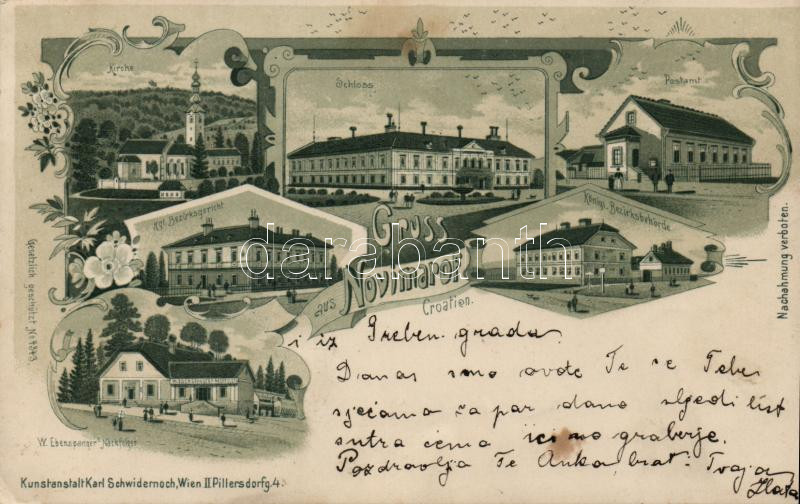 Kirche
Schloss
Postamt
Kgl. Bezirksgericht
Gruss
aus
Novimarof
Croatien.
Königl. Bezirksbehörde
W. Ebenspanger's Nachfolger
Gesetzlich geschützt No
Nachahmung verboten.
Kunstanstalt Karl Schwidernoch, Wien II Pillersdorfg. 4.
darabanth
i iz Greben grada
Danas smo ovdje Te se Tebe
sjećamo za par dana slijedi list
sutra ćemo ići na groblje.
Pozdravlja Te Anka, brat. Tvoja
Zlata